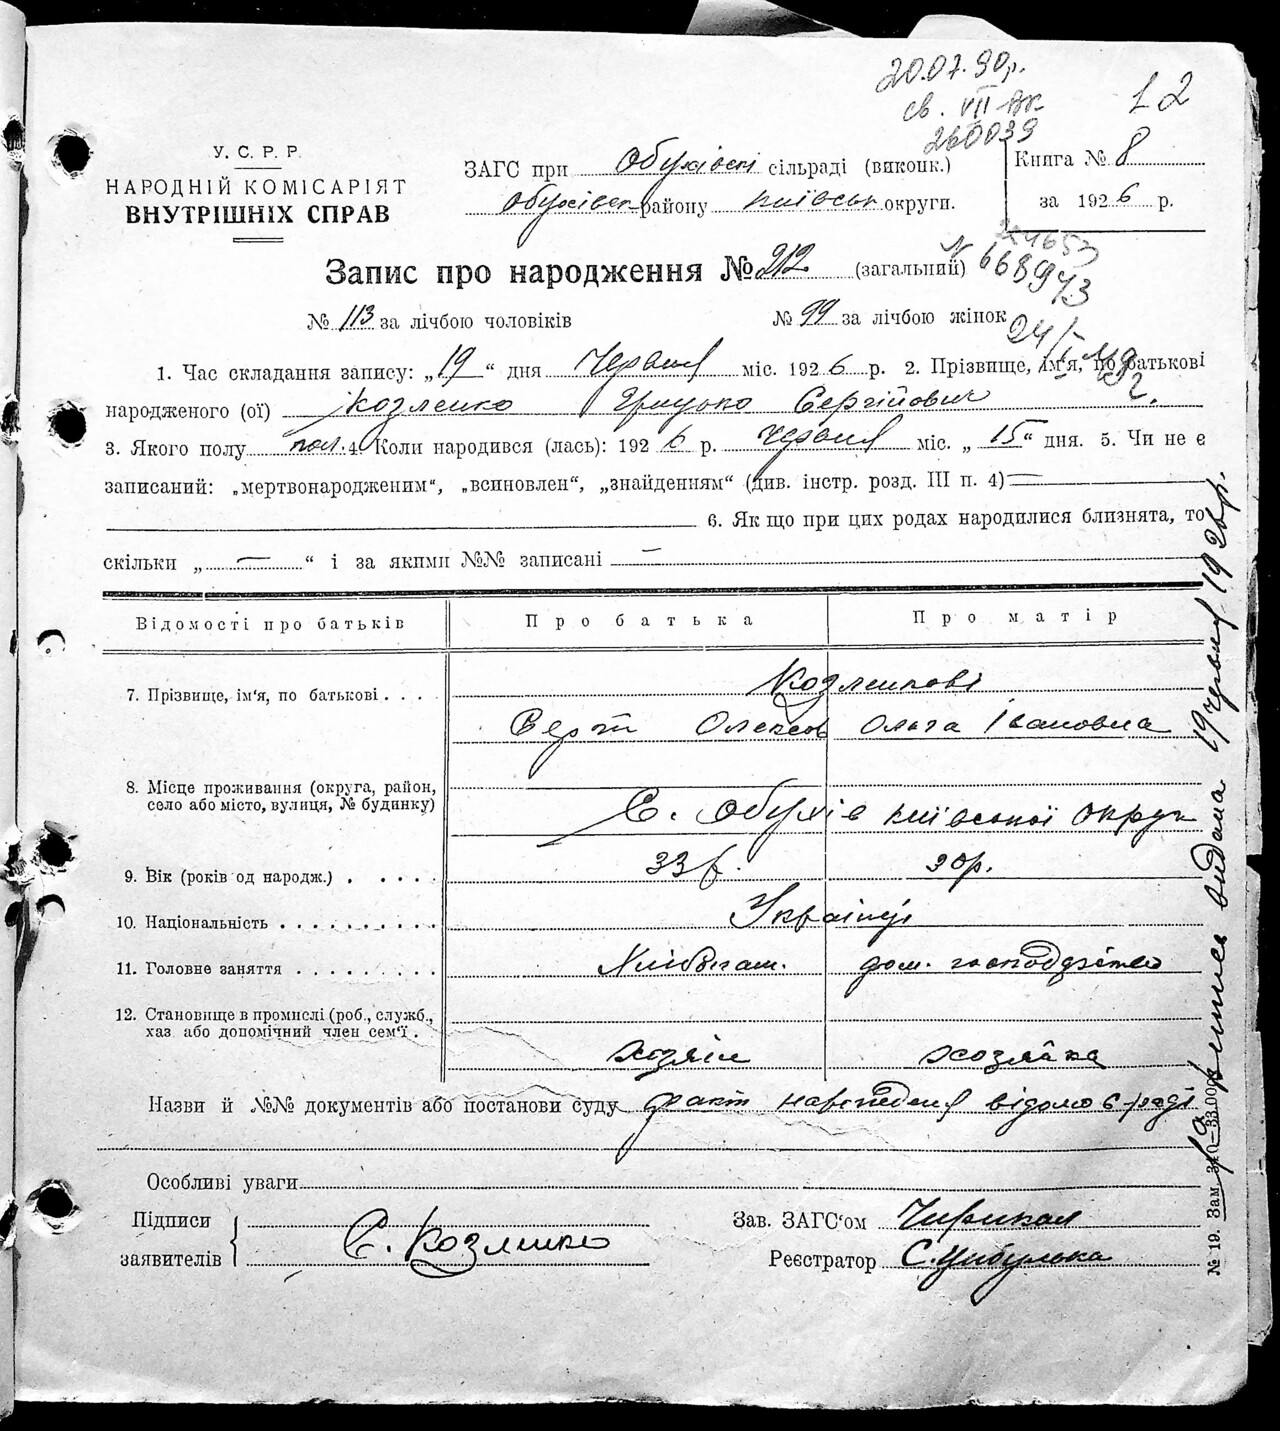 20.07.90р.
св. VII БК
260039
12
У. С. Р. Р.
НАРОДНІЙ КОМІСАРІЯТ
ВНУТРІШНІХ СПРАВ
ЗАГС при Обухівскі сільраді (виконк.)
Обухівск району Київськ округи.
Книга № 8
за 1926 р.
Запис про народження № 212 (загальний)
№ 668943
№ 113 за лічбою чоловіків № 99 за лічбою жінок
24/I
1. Час складання запису: „19“ дня Червня міс. 1926 р. 2. Прізвище, ім'я, по батькові
народженого (ої) Козленко Грицько Сергійович
3. Якого полу чол. 4. Коли народився (лась): 1926 р. Червня міс. „15“ дня. 5. Чи не є
записаний: „мертвонародженим“, „всиновлен“, „знайденням“ (див. інстр. розд. III п. 4) —
6. Як що при цих родах народилися близнята, то
скільки „—“ і за якими №№ записані —
Відомості про батьків Про батька Про матір
7. Прізвище, ім'я, по батькові . . . . Козленкові
Сергій Олексов Ольга Івановна
8. Місце проживання (округа, район,
село або місто, вулиця, № будинку) С. Обухів Київської округи
9. Вік (років од народж.) . . . . . 33 р. 30 р.
10. Національність . . . . . . . . . . Українці
11. Головне заняття . . . . . . . . . Хлібопаш. дом. господарство
12. Становище в промислі (роб., служб.,
хаз або допомічний член сем'ї . хозяін хозяйка
Назви й №№ документів або постанови суду факт народження відомо с-раді
Особливі уваги
Підписи
заявителів
С. Козленко
Зав. ЗАГС'ом
Реєстратор С. Цибулька
№ 19. Зам
випись видана 19 червня 1926 р.